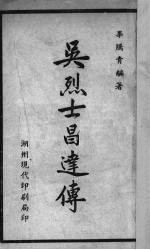 畢騰青編著
吳烈士昌達傳
湖州現代印刷局印